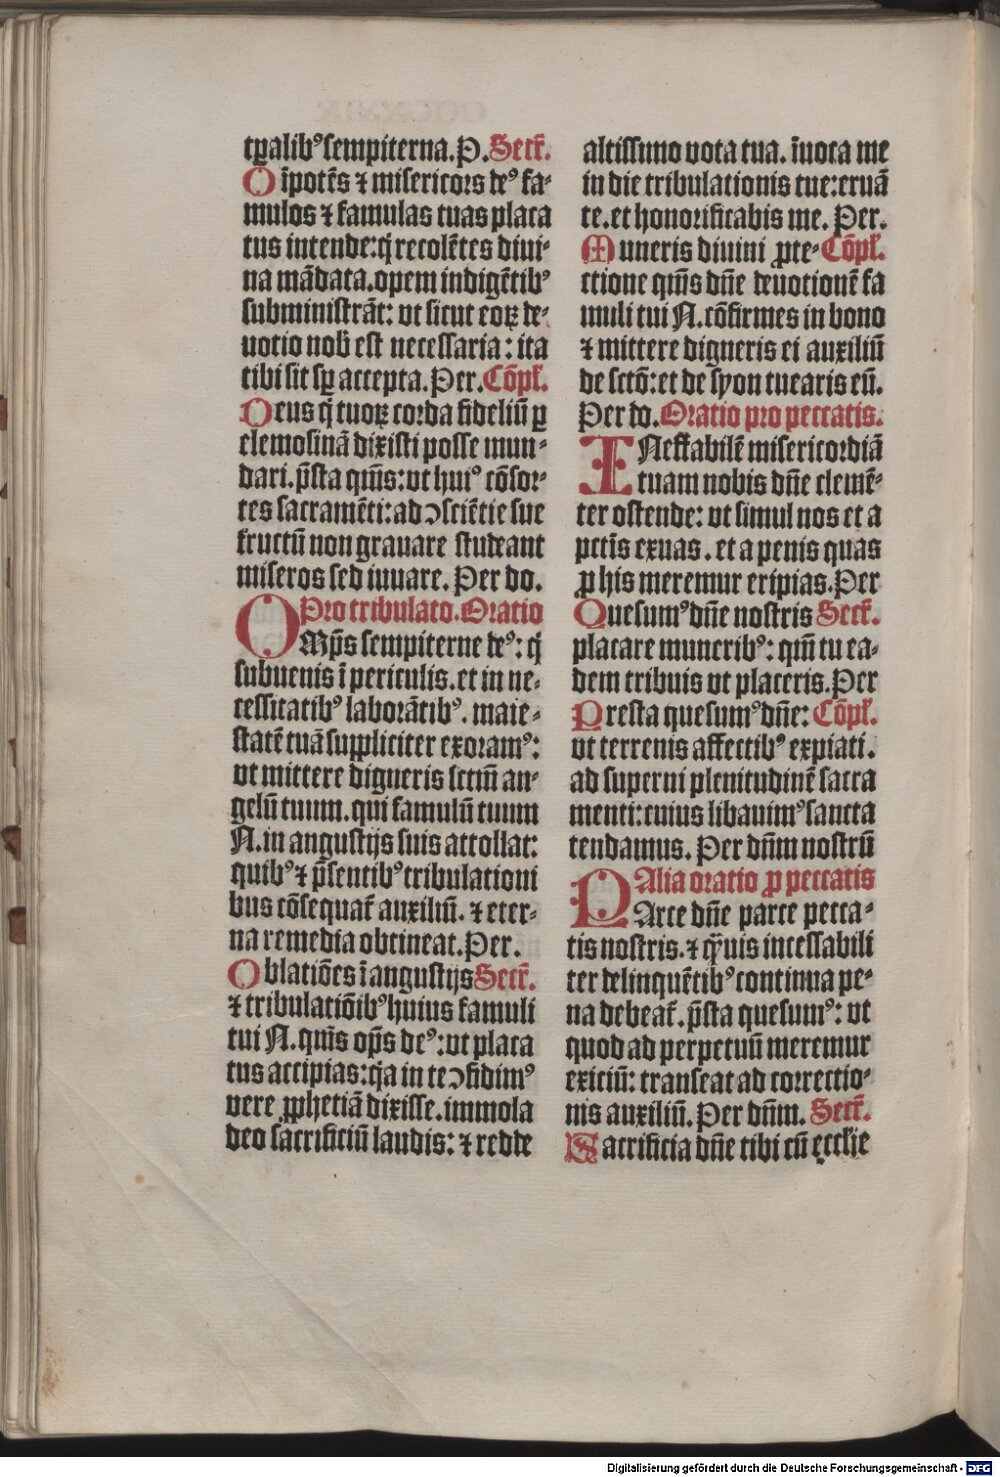 tꝑalibꝰ sempiterna. P. Secꝛ̄.
Oīpotēs ⁊ misericors deꝰ fa-
mulos ⁊ famulas tuas placa
tus intende: q̄ recolētes diui-
na mādata. opem indigētibꝰ
subministrāt: vt sicut eoꝝ de-
uotio nob̄ est necessaria: ita
tibi sit sꝑ accepta. Per. Cōpl̄.
Deus q̄ tuoꝝ corda fideliū ꝑ
elemosinā dixisti posse mun-
dari. p̄sta qm̄s: vt huiꝰ cōsor-
tes sacramēti: ad ↄsciētie sue
fructū non grauare studeant
miseros sed iuuare. Per do.
Pro tribulato. Oratio
OMp̄s sempiterne deꝰ: q̄
subuenis ī periculis. et in ne-
cessitatibꝰ laborātibꝰ. maie-
statē tuā suppliciter exoramꝰ:
vt mittere digneris sctm̄ an-
gelū tuum. qui famulū tuum
N. in angustijs suis attollat:
quibꝰ ⁊ p̄sentibꝰ tribulationi
bus cōsequat᷑ auxiliū. ⁊ eter-
na remedia obtineat. Per.
Oblatiōes ī angustijs Secꝛ̄.
⁊ tribulatiōibꝰ huius famuli
tui N. qm̄s op̄s deꝰ: vt placa
tus accipias: q̄a in te ↄfidimꝰ
vere ꝓphetiā dixisse. immola
deo sacrificiū laudis: ⁊ redde
altissimo vota tua. īuoca me
in die tribulationis tue: eruā
te. et honorificabis me. Per.
Muneris diuini ꝓte- Cōpl̄.
ctione qm̄s dn̄e deuotionē fa
muli tui N. cōfirmes in bono
⁊ mittere digneris ei auxiliū
de sctō: et de syon tuearis eū.
Per do. Oratio pro peccatis.
INeffabilē misericordiā
tuam nobis dn̄e clemē-
ter ostende: vt simul nos et a
pctīs exuas. et a penis quas
ꝓ his meremur eripias. Per
Quesumꝰ dn̄e nostris Secꝛ̄.
placare muneribꝰ: qm̄ tu ea-
dem tribuis vt placeris. Per
Presta quesumꝰ dn̄e: Cōpl̄.
vt terrenis affectibꝰ expiati.
ad superni plenitudinē sacra
menti: cuius libauimꝰ sancta
tendamus. Per dn̄m nostrū
Alia oratio ꝓ peccatis
PArce dn̄e parce pecca-
tis nostris. ⁊ q̄uis incessabili
ter delinquētibꝰ continua pe-
na debeat᷑. p̄sta quesumꝰ: vt
quod ad perpetuū meremur
exiciū: transeat ad correctio-
nis auxiliū. Per dn̄m. Secꝛ̄.
Sacrificia dn̄e tibi cū ęccl̄ie
Digitalisierung gefördert durch die Deutsche Forschungsgemeinschaft - DFG